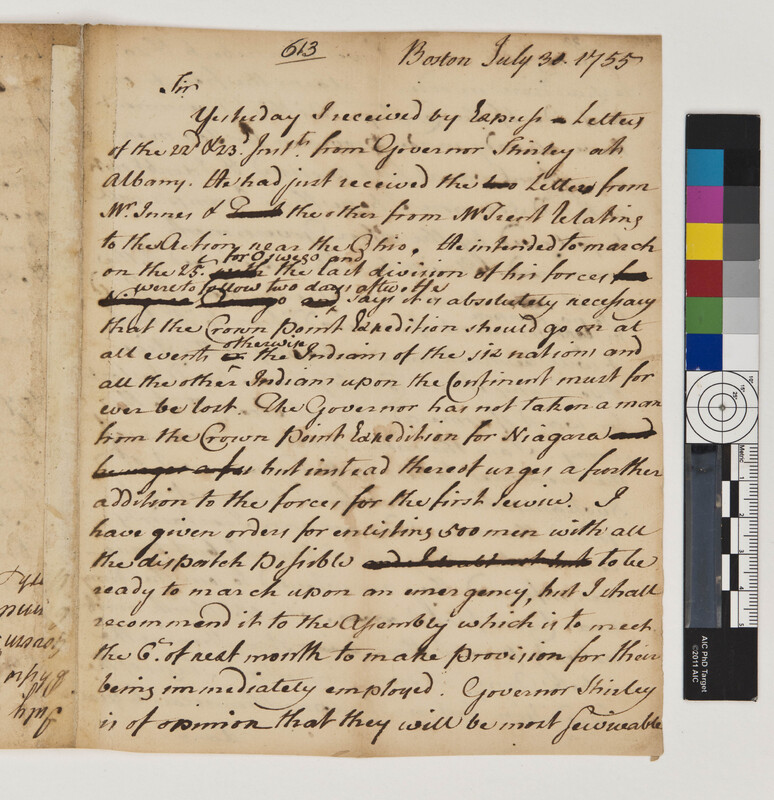 613
Boston July 30. 1755
Sir
Yesterday I received by Express Letters
of the 22d & 23d. Instts. from Governor Shirley at
Albany. He had just received the two Letters from
Mr. Innes & the other from Mr Trent relating
to the Action near the Ohio. He intended to march
for Oswego and
on the 25. the last division of his forces for
were to follow two days after the
and says it is absolutely necessary
that the Crown point Expedition should go on at
otherwise
all events the Indians of the six nations and
all the other Indians upon the Continent must for
ever be lost. The Governor has not taken a man
from the Crown Point Expedition for Niagara and
be urges a fur but instead thereof urges a further
addition to the forces for the first Service. I
have given orders for enlisting 500 men with all
the dispatch possible and I to be
ready to march upon an emergency, but I shall
recommend it to the Assembly which is to meet
the 6th. of next month to make provision for their
being immediately employed. Governor Shirley
is of opinion that they will be most serviceable
July